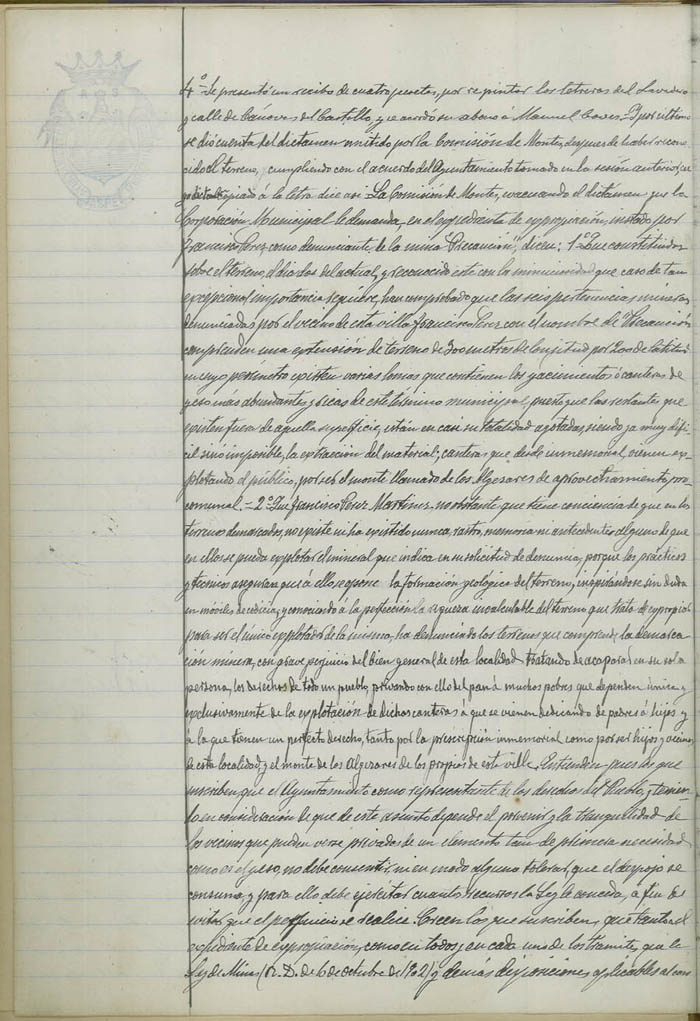 4º Se presentó un recibo de cuatro pesetas, por repintar los letreros del Lavadero
y calle de Cánovas del Castillo, y se acordó su abono á Manuel Y por último
se dió cuenta del dictamen emitido por la Comisión de Montes, despues de haber recono-
cido el terreno, cumpliendo con el acuerdo del Ayuntamiento tomado en la sesión anterior, cu-
yo dictamen copiado á la letra dice asi: La Comisión de Montes, evacuando el dictámen que la
Corporación Municipal le demanda, en el expediente de expropiación, instado por
Francisco Perez como denunciante de la mina "Precaución", dicen: 1º Que constituidos
sobre el terreno, el dia dos del actual, y reconocido este con la minuciosidad que caso de tan
excepcional importancia requiere, han comprobado que las seis pertenencias mineras
denunciadas por el vecino de esta villa Francisco Perez con el nombre de "Precaución"
comprenden una extensión de terreno de 300 metros de longitud por 200 de latitud
en cuyo perimetro existen varias lomas que contienen los yacimientos ó canteras de
yeso mas abundantes y ricas de este término municipal, puesto que las restantes que
existen fuera de aquella superficie, están en casi su totalidad agotadas, siendo ya muy difi-
cil sino imposible, la extracción del material; canteras que desde inmemorial, vienen ex-
plotando el público, por ser el monte llamado de los Algesares de aprovechamiento pro-
comunal. = 2º Que Francisco Perez Martinez, no obstante que tiene conciencia de que en los
terrenos demarcados, no existe ni ha existido nunca, rastro, memoria ni antecedentes alguno de que
en ellos se pueda explotar el mineral que indica en su solicitud de denuncia, porque los prácticos
y tecnicos aseguran que á ello se opone la formación geologica del terreno, inspirandose sin duda
en móviles de codicia, y conociendo á la perfección la riqueza incalculable del terreno que trata de expropiar
para ser el único explotador de la misma, ha denunciado los terrenos que comprende la demarca-
ción minera, con grave perjuicio del bien general de esta localidad tratando de acaparar en su sola
persona, los derechos de todo un pueblo, privando con ello del pan á muchos pobres que dependen única y
exclusivamente de la explotación de dichas canteras á que se vienen dedicando de padres á hijos y
á la que tienen un perfecto derecho, tanto por la prescripción inmemorial como por ser hijos y vecinos
de esta localidad y el monte de los Algesares de los propios de esta villa. Entienden pues los que
suscriben que el Ayuntamiento como representante de los derechos del Pueblo, y tenien-
do en consideración de que de este asunto depende el porvenir y la tranquilidad de
los vecinos que pueden verse privados de un elemento tan de primera necesidad
como es el yeso, no debe consentir, ni en modo alguno tolerar, que el despojo se
consuma, y para ello debe ejercitar cuantos recursos la Ley le conceda, á fin de
evitar que el perjuicio se realice. Creen los que suscriben, que tanto el
expediente de expropiación, como en todos y en cada uno de los tramites que la
Ley de Minas (R. D. de 6 de octubre de 1902) y demás disposiciones aplicables al caso